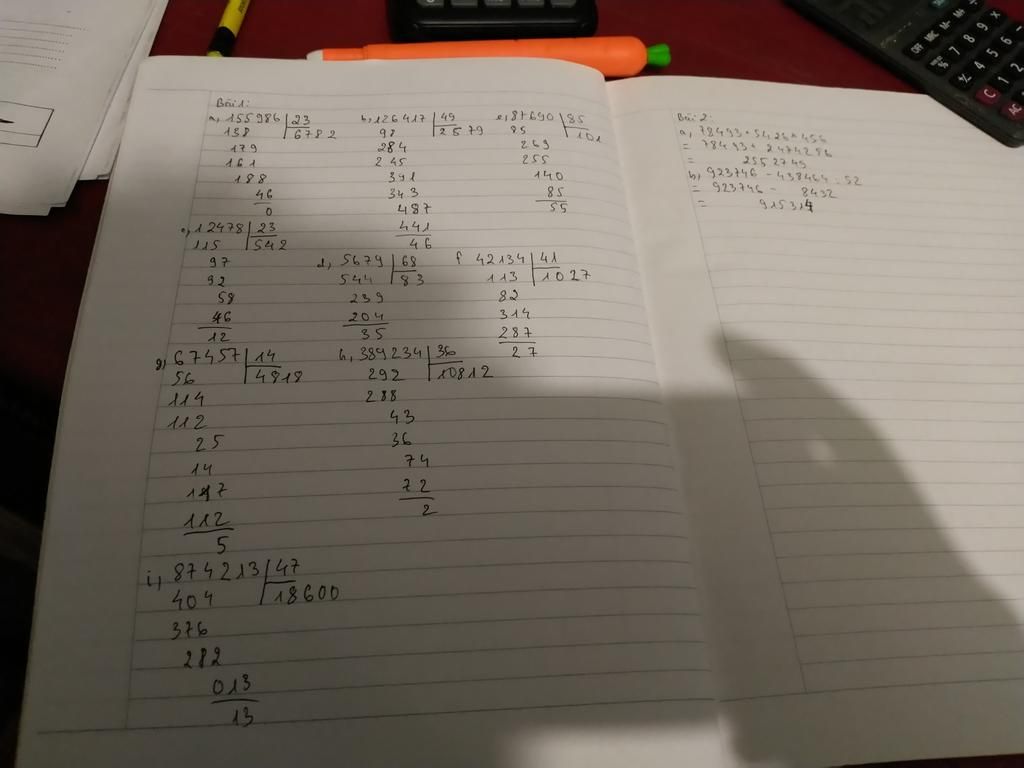 Bài 1:
a, 155986 | 23 b, 126417 | 49 e, 87690 | 85
138 6782 98 2579 85 101
179 284 269
161 245 255
188 391 140
46 343 85
0 487 55
c, 12478 | 23 441
115 542 46
97 d, 5679 | 68 f 42134 | 41
92 544 83 113 1027
58 239 82
46 204 314
12 35 287
27
g) 67457 | 14 h, 389234 | 36
56 4818 292 10812
114 288
112 43
25 36
14 74
117 72
112 2
5
i, 874213 | 47
404 18600
376
282
013
13
Bài 2:
a, 78493 + 5426 * 456
= 78493 + 2474256
= 2552749
b, 923746 - 438464 : 52
= 923746 - 8432
= 915314